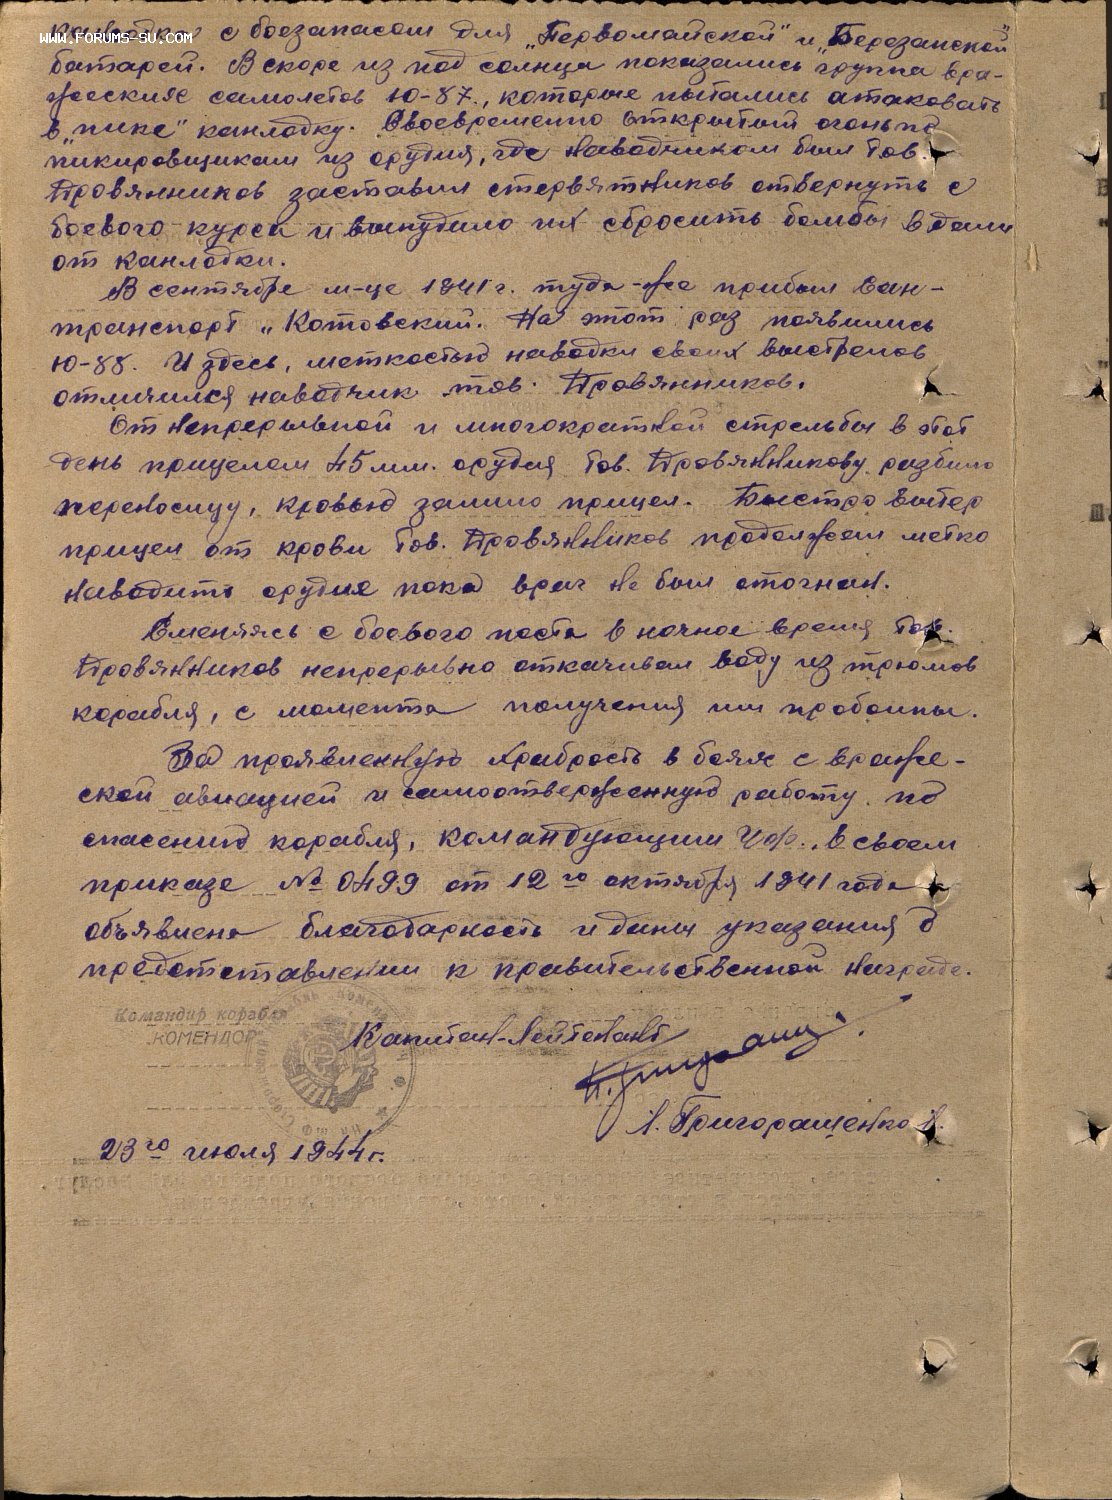 www.forums-su.com
с боезапасом для „Первомайской" и „Березанской"
батарей. Вскоре из под солнца показались группа вра-
жеских самолетов Ю-87., которые пытались атаковать
в „пике" канлодку. Своевременно открытый огонь по
пикировщикам из орудия, где наводчиком был тов.
Провянников заставил стервятников отвернуть с
боевого курса и вынудило их сбросить бомбы в дали
от канлодки.
В сентябре м-це 1941 г. туда-же прибыл сан-
транспорт „Котовский. На этот раз появились
Ю-88. И здесь, меткостью наводки своих выстрелов
отличился наводчик тов. Провянников.
От непрерывной и многократной стрельбы в этот
день прицелом 45 мм. орудия тов. Провянникову разбило
переносицу, кровью залило прицел. Быстро вытер
прицел от крови тов. Провянников продолжал метко
наводить орудие пока враг не был отогнан.
Сменяясь с боевого поста в ночное время тов.
Провянников непрерывно откачивал воду из трюмов
корабля, с момента получения им пробоины.
За проявленную храбрость в боях с враже-
ской авиацией и самоотверженную работу по
спасению корабля, командующим ЧФ., в своем
приказе № 0499 от 12го октября 1941 года
объявлена благодарность и даны указания о
предстставлении к правительственной награде.
Командир корабля
„КОМЕНДОР"
Капитан-Лейтенант
/. Григоращенко /.
23го июля 1944 г.